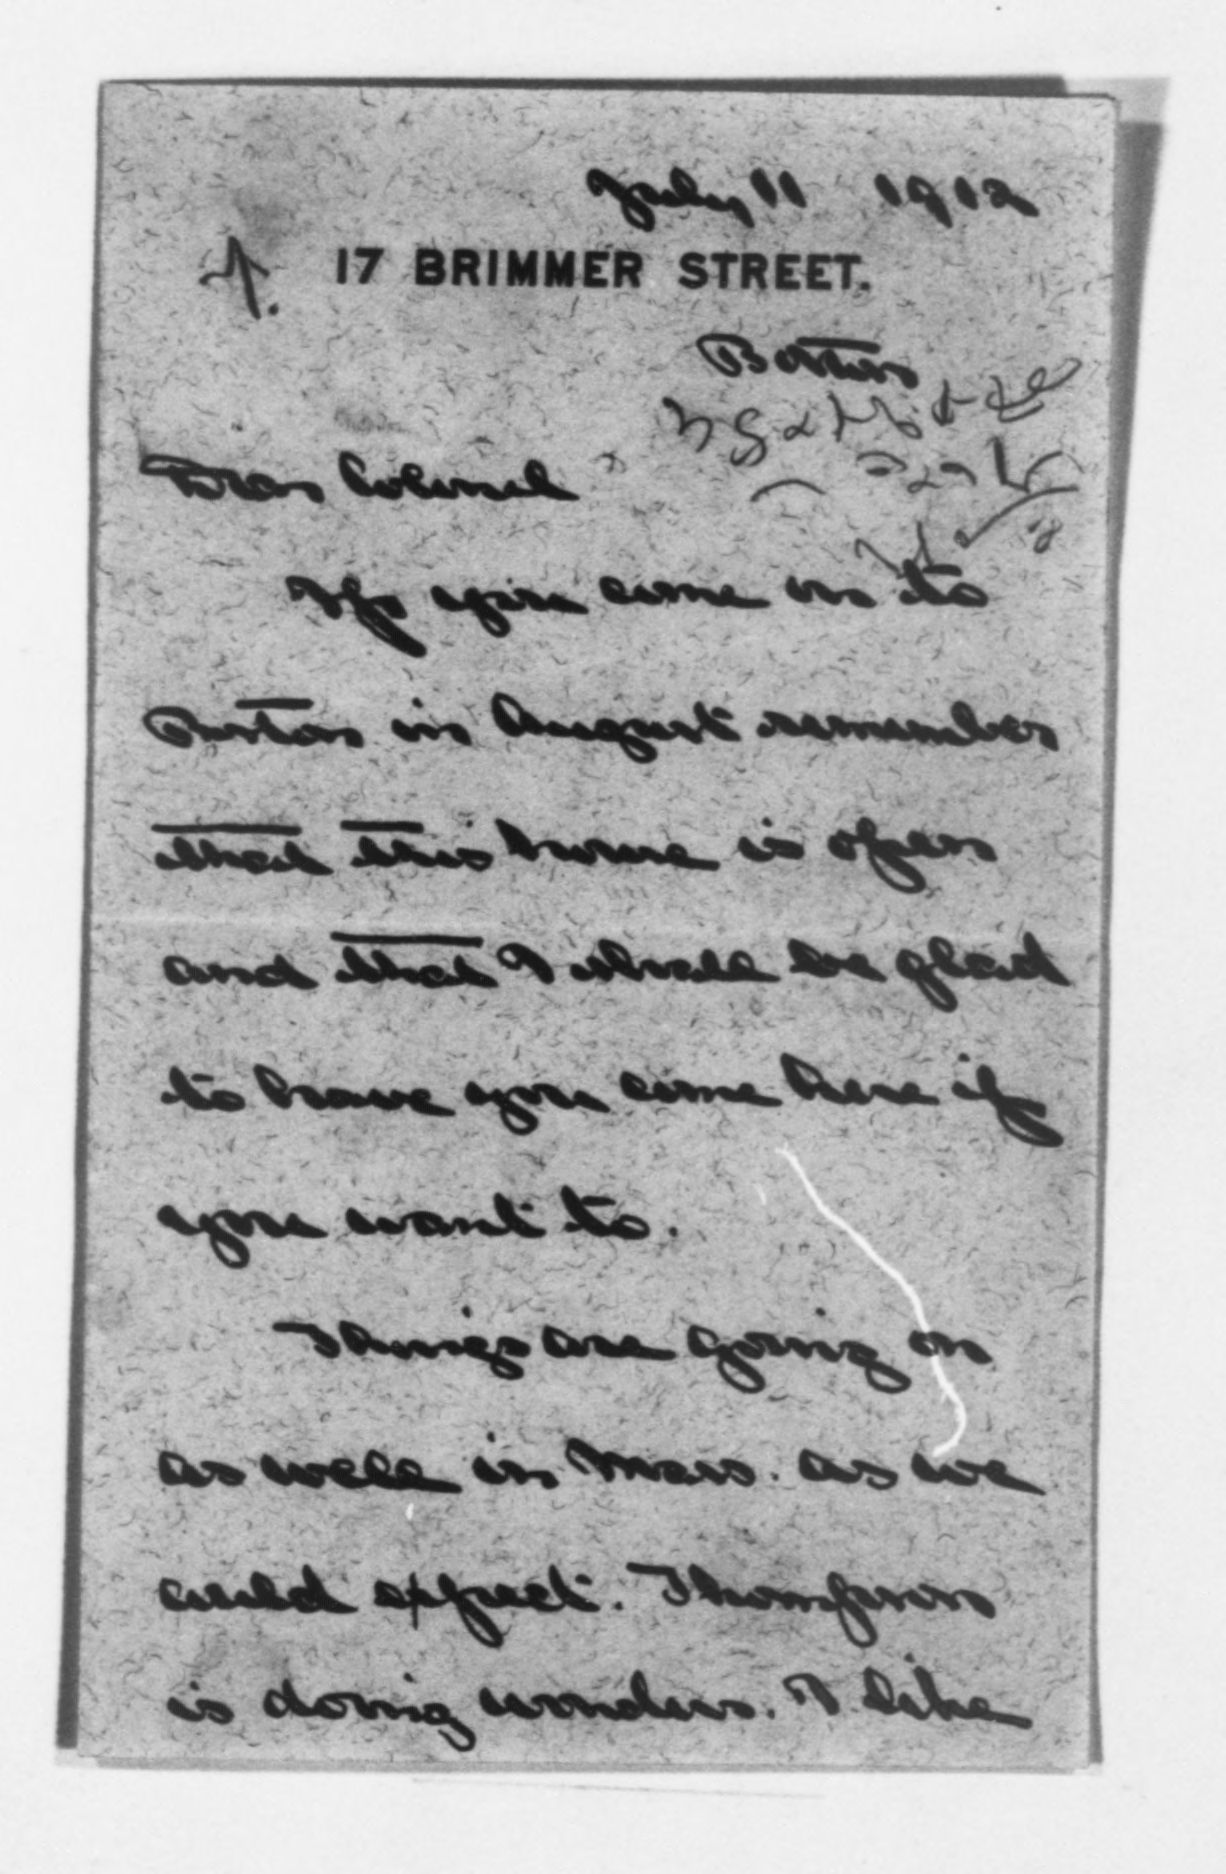 July 11 1912
17 BRIMMER STREET.
Boston
Dear Colonel
If you come on to
Boston in August remember
that this house is open
and that I shall be glad
to have you come here if
you want to.
Things are going on
as well in Mass. as we
could expect. Thompson
is doing wonders. I like